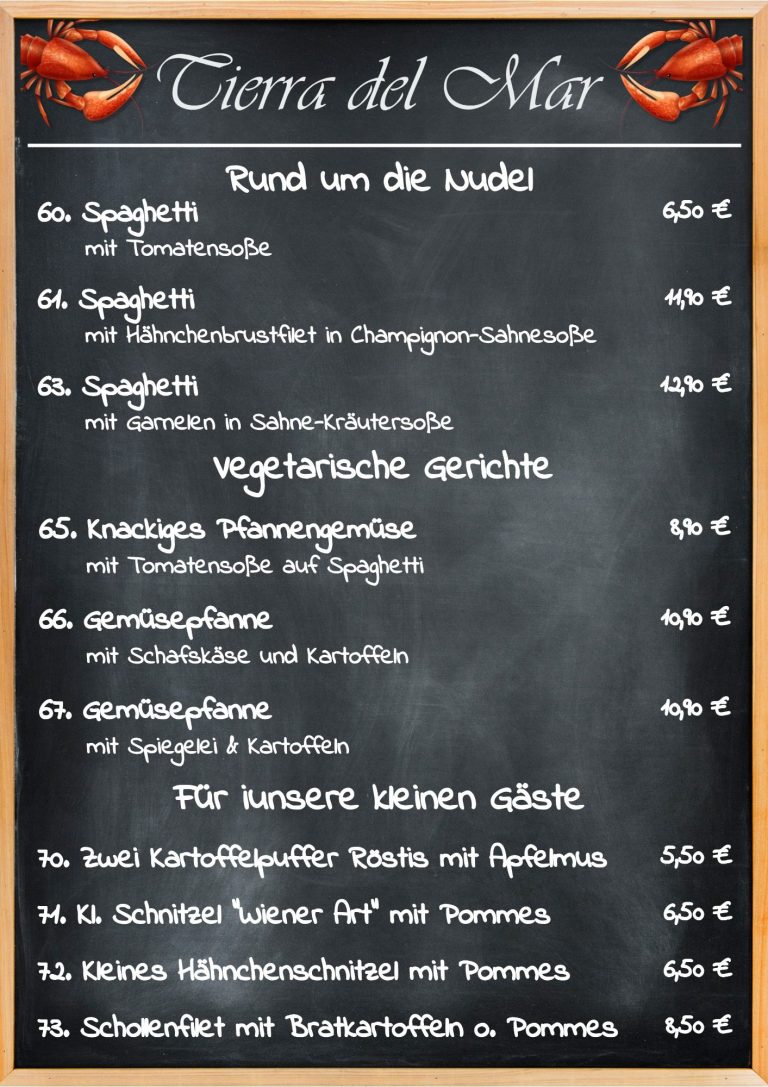 Tierra del Mar
Rund um die Nudel
60. Spaghetti 6,50 €
mit Tomatensoße
61. Spaghetti 11,90 €
mit Hähnchenbrustfilet in Champignon-Sahnesoße
63. Spaghetti 12,90 €
mit Garnelen in Sahne-Kräutersoße
Vegetarische Gerichte
65. Knackiges Pfannengemüse 8,90 €
mit Tomatensoße auf Spaghetti
66. Gemüsepfanne 10,90 €
mit Schafskäse und Kartoffeln
67. Gemüsepfanne 10,90 €
mit Spiegelei & Kartoffeln
Für iunsere kleinen Gäste
70. Zwei Kartoffelpuffer Röstis mit Apfelmus 5,50 €
71. Kl. Schnitzel "Wiener Art" mit Pommes 6,50 €
72. Kleines Hähnchenschnitzel mit Pommes 6,50 €
73. Schollenfilet mit Bratkartoffeln o. Pommes 8,50 €